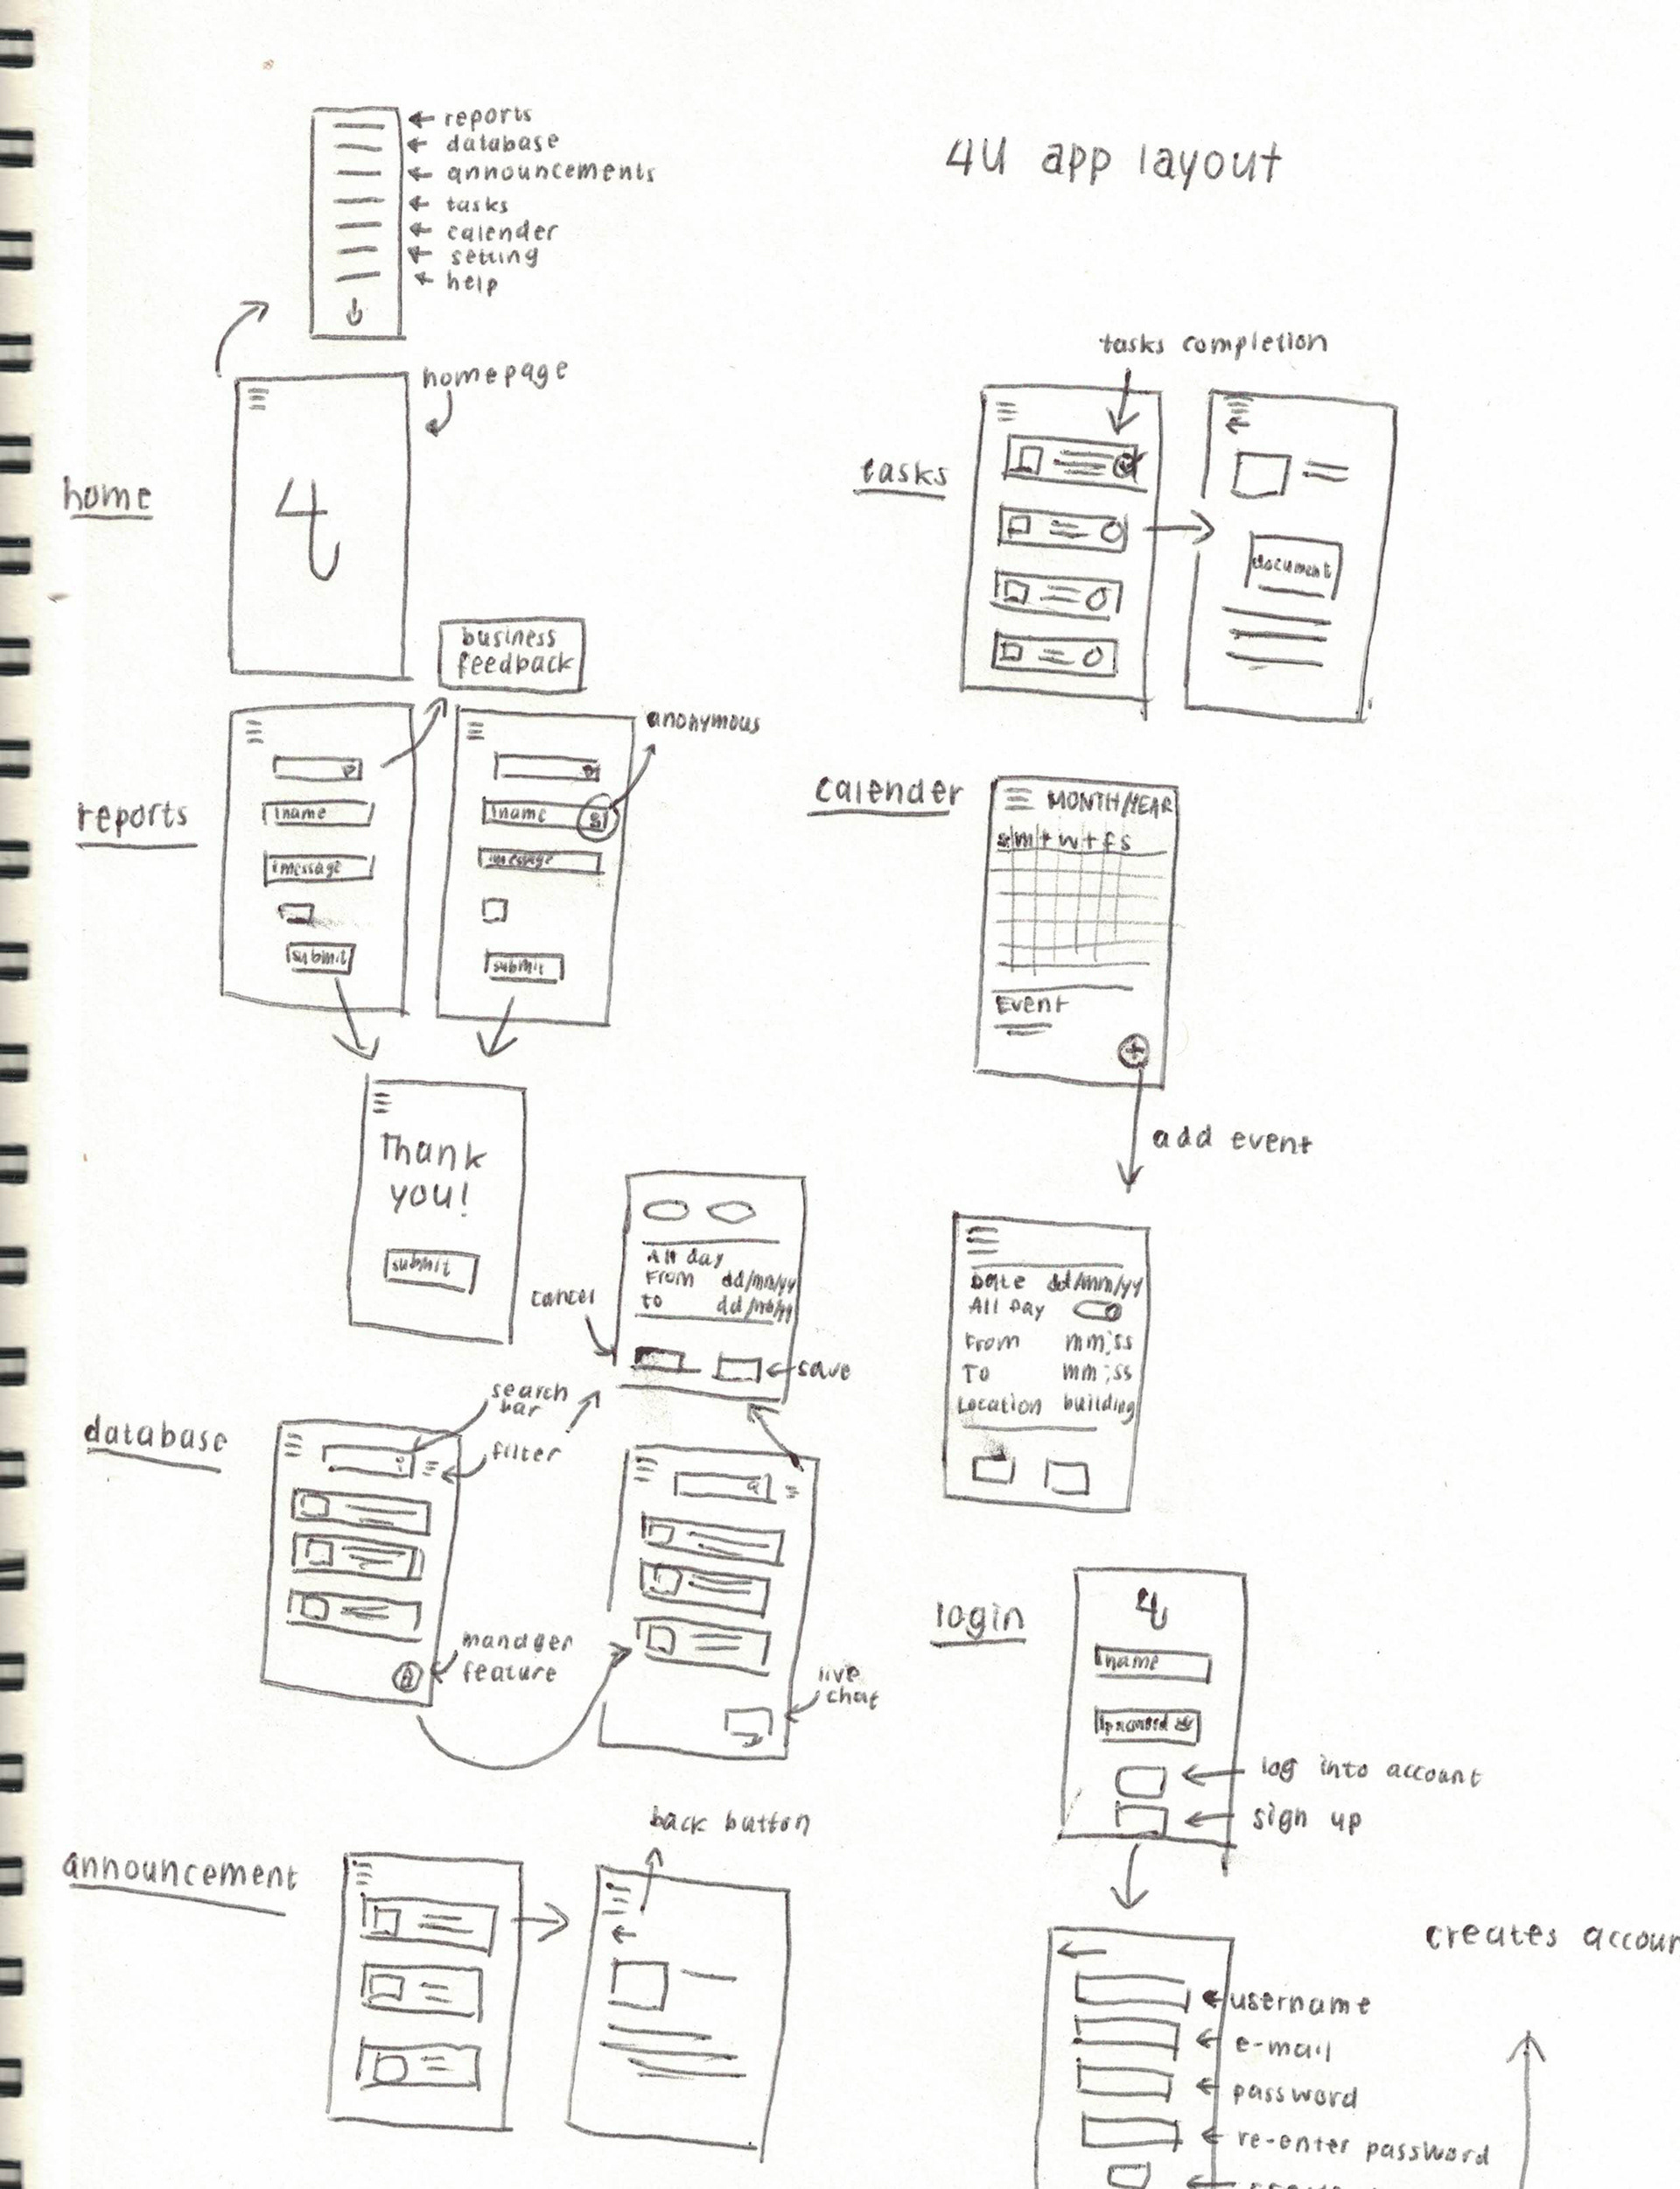 reports
database
announcements
tasks
calender
setting
help
4U app layout
homepage
home
4
business
feedback
reports
name
message
submit
anonymous
name
message
submit
Thank
you!
submit
All day
From dd/mm/yy
to dd/mm/yy
cancel
save
database
search
bar
filter
manager
feature
live
chat
announcement
back button
tasks completion
tasks
document
calender
MONTH/YEAR
s m t w t f s
Event
add event
Date dd/mm/yy
All Day
From mm:ss
To mm:ss
Location building
login
name
password
log into account
sign up
username
e-mail
password
re-enter password
creates